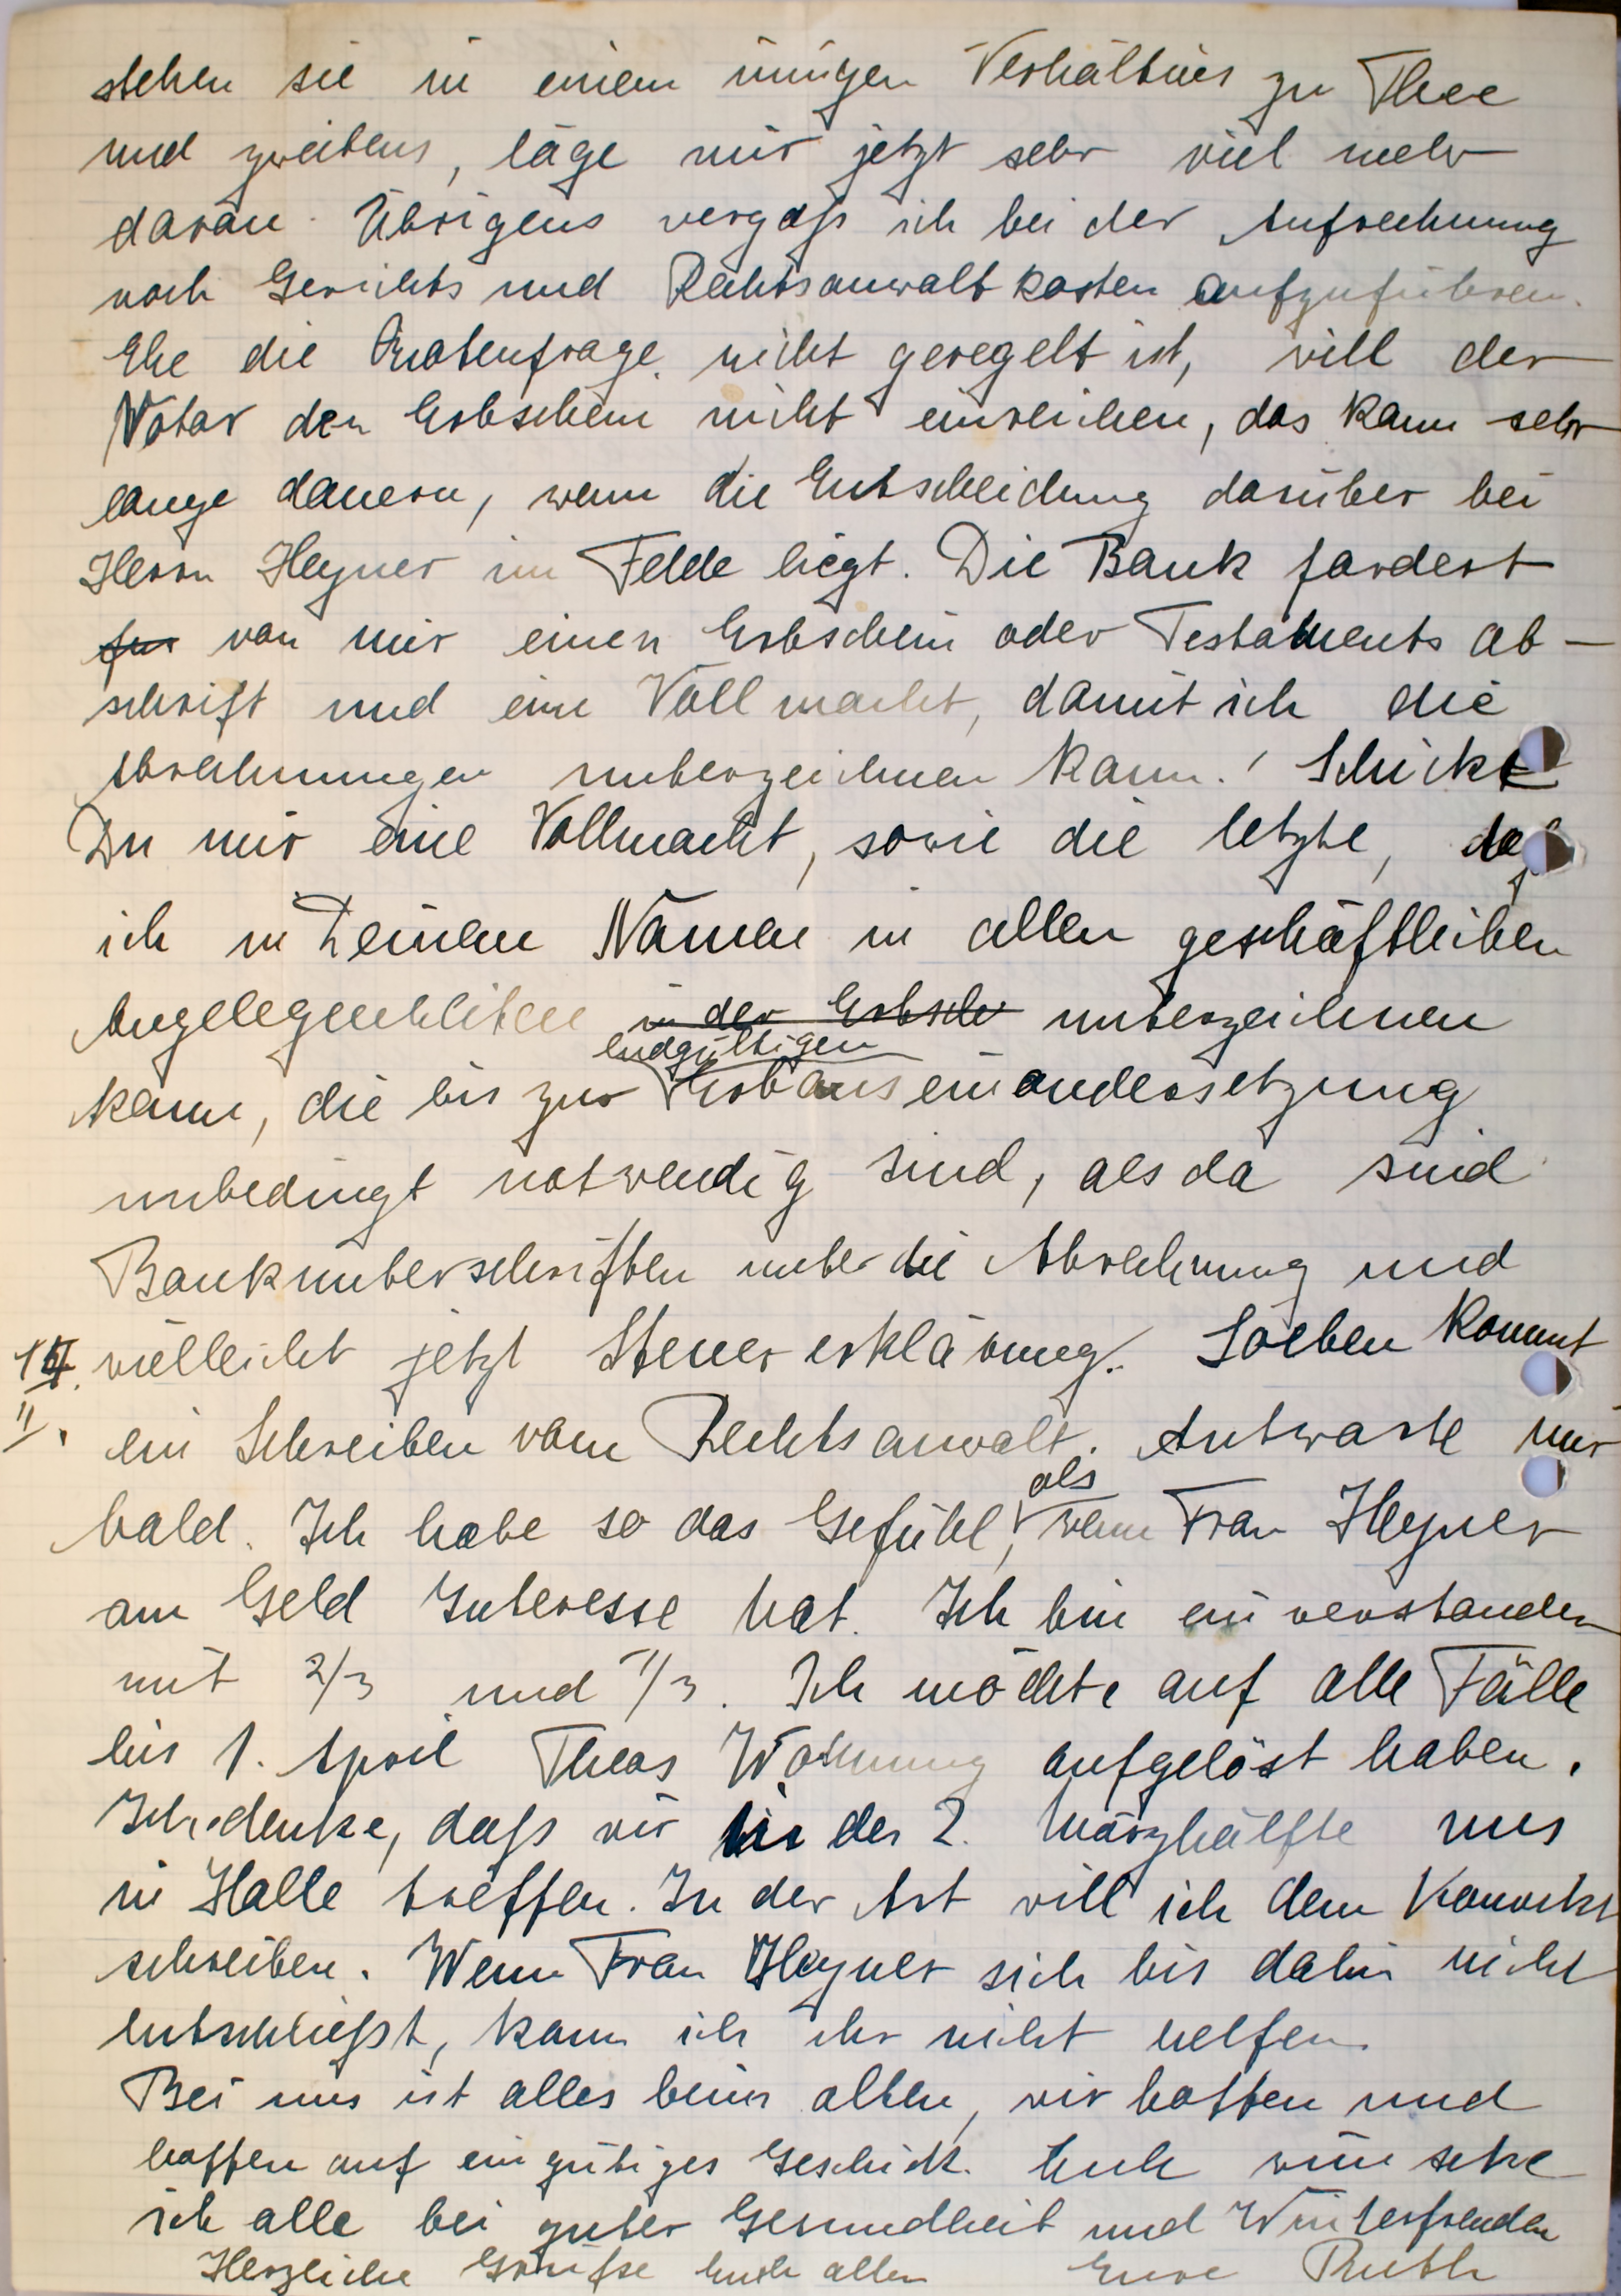 stehen sie in einem innigen Verhältnis zu Thee
und zweitens, läge mir jetzt sehr viel mehr
daran. Übrigens vergaß ich bei der Aufrechnung
noch Gerichts und Rechtsanwaltkosten aufzuführen.
Ehe die Quotenfrage nicht geregelt ist, will der
Notar den Erbschein nicht einreichen, das kann sehr
lange dauern, wenn die Entscheidung darüber bei
Herrn Heyner im Felde liegt. Die Bank fordert
von mir einen Erbschein oder Testaments ab-
schrift und eine Vollmacht, damit ich die
Abrechnungen unterzeichnen kann.! Schickt
Du mir eine Vollmacht, sowie die letzte, daß
ich in Deinem Namen in allen geschäftlichen
Angelegenheiten in der Erbsch unterzeichnen
endgültigen
kann, die bis zur Erbauseinandersetzung
unbedingt notwendig sind, als da sind
Bankunterschriften unter die Abrechnung und
vielleicht jetzt Steuererklärung. Soeben kommt
II. ein Schreiben vom Rechtsanwalt. Antworte mir
als
bald. Ich habe so das Gefühl, wenn Frau Heyner
am Geld Interesse hat. Ich bin einverstanden
mit 2/3 und 1/3. Ich möchte auf alle Fälle
bis 1. April Theas Wohnung aufgelöst haben.
Ich denke, daß wir in der 2. Märzhälfte uns
in Halle treffen. In der Art will ich dem
schreiben. Wenn Frau Heyner sich bis dahin nicht
entschließt, kann ich ihr nicht helfen.
Bei uns ist alles beim alten, wir hoffen und
hoffen auf ein gütiges Geschick. Euch wünsche
ich alle bei guter Gesundheit und Winterfreuden
Herzliche Grüße Euch allen Eure Ruth